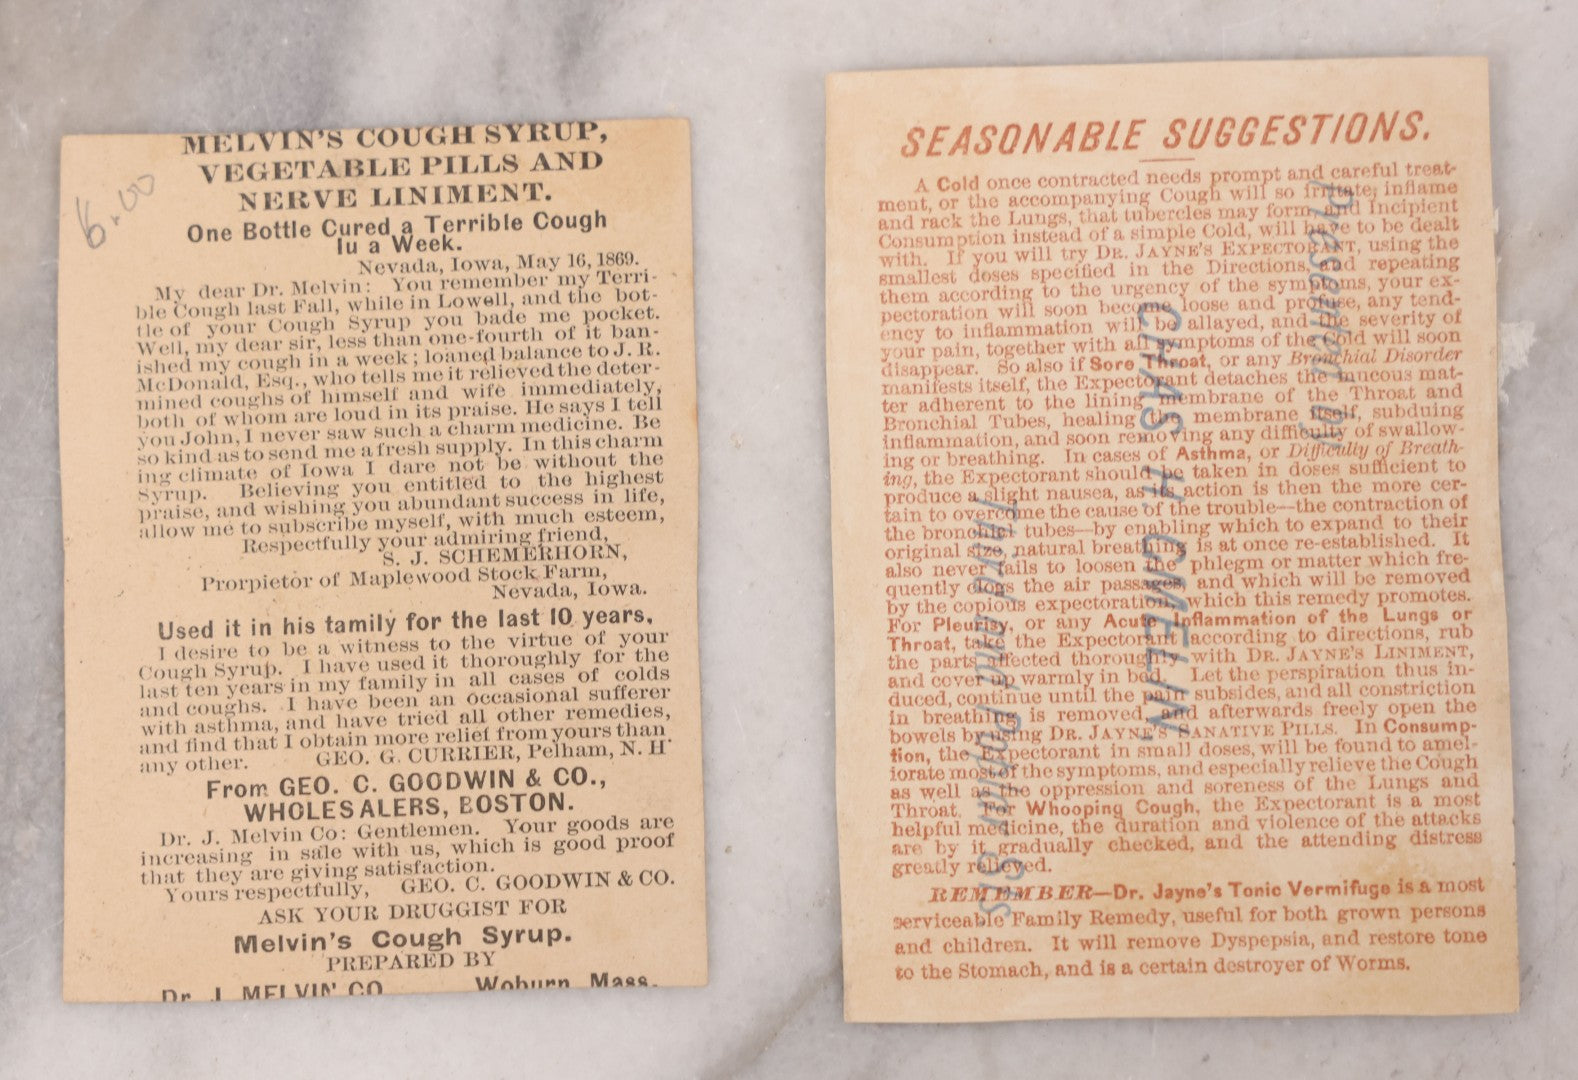 6.00
MELVIN'S COUGH SYRUP,
VEGETABLE PILLS AND
NERVE LINIMENT.
One Bottle Cured a Terrible Cough
Iu a Week.
Nevada, Iowa, May 16, 1869.
My dear Dr. Melvin: You remember my Terri-
ble Cough last Fall, while in Lowell, and the bot-
tle of your Cough Syrup you bade me pocket.
Well, my dear sir, less than one-fourth of it ban-
ished my cough in a week; loaned balance to J. R.
McDonald, Esq., who tells me it relieved the deter-
mined coughs of himself and wife immediately,
both of whom are loud in its praise. He says I tell
you John, I never saw such a charm medicine. Be
so kind as to send me a fresh supply. In this charm
ing climate of Iowa I dare not be without the
Syrup. Believing you entitled to the highest
praise, and wishing you abundant success in life,
allow me to subscribe myself, with much esteem,
Respectfully your admiring friend,
S. J. SCHEMERHORN,
Prorpietor of Maplewood Stock Farm,
Nevada, Iowa.
Used it in his family for the last 10 years.
I desire to be a witness to the virtue of your
Cough Syrup. I have used it thoroughly for the
last ten years in my family in all cases of colds
and coughs. I have been an occasional sufferer
with asthma, and have tried all other remedies,
and find that I obtain more relief from yours than
any other. GEO. G. CURRIER, Pelham, N. H
From GEO. C. GOODWIN & CO.,
WHOLESALERS, BOSTON.
Dr. J. Melvin Co: Gentlemen. Your goods are
increasing in sale with us, which is good proof
that they are giving satisfaction.
Yours respectfully, GEO. C. GOODWIN & CO.
ASK YOUR DRUGGIST FOR
Melvin's Cough Syrup.
PREPARED BY
Dr. J. MELVIN CO Woburn, Mass.
SEASONABLE SUGGESTIONS.
A Cold once contracted needs prompt and careful treat-
ment, or the accompanying Cough will so irritate, inflame
and rack the Lungs, that tubercles may form, and Incipient
Consumption instead of a simple Cold, will have to be dealt
with. If you will try DR. JAYNE'S EXPECTORANT, using the
smallest doses specified in the Directions, and repeating
them according to the urgency of the symptoms, your ex-
pectoration will soon become loose and profuse, any tend-
ency to inflammation will be allayed, and the severity of
your pain, together with all symptoms of the Cold will soon
disappear. So also if Sore Throat, or any Bronchial Disorder
manifests itself, the Expectorant detaches the mucous mat-
ter adherent to the lining membrane of the Throat and
Bronchial Tubes, healing the membrane itself, subduing
inflammation, and soon removing any difficulty of swallow-
ing or breathing. In cases of Asthma, or Difficulty of Breath-
ing, the Expectorant should be taken in doses sufficient to
produce a slight nausea, as its action is then the more cer-
tain to overcome the cause of the trouble—the contraction of
the bronchial tubes—by enabling which to expand to their
original size, natural breathing is at once re-established. It
also never fails to loosen the phlegm or matter which fre-
quently clogs the air passages, and which will be removed
by the copious expectoration, which this remedy promotes.
For Pleurisy, or any Acute Inflammation of the Lungs or
Throat, take the Expectorant according to directions, rub
the parts affected thoroughly with DR. JAYNE'S LINIMENT,
and cover up warmly in bed. Let the perspiration thus in-
duced, continue until the pain subsides, and all constriction
in breathing is removed, and afterwards freely open the
bowels by using DR. JAYNE'S SANATIVE PILLS. In Consump-
tion, the Expectorant in small doses, will be found to amel-
iorate most of the symptoms, and especially relieve the Cough
as well as the oppression and soreness of the Lungs and
Throat. For Whooping Cough, the Expectorant is a most
helpful medicine, the duration and violence of the attacks
are by it gradually checked, and the attending distress
greatly relieved.
REMEMBER—Dr. Jayne's Tonic Vermifuge is a most
serviceable Family Remedy, useful for both grown persons
and children. It will remove Dyspepsia, and restore tone
to the Stomach, and is a certain destroyer of Worms.
Presented by
CHAS. H.